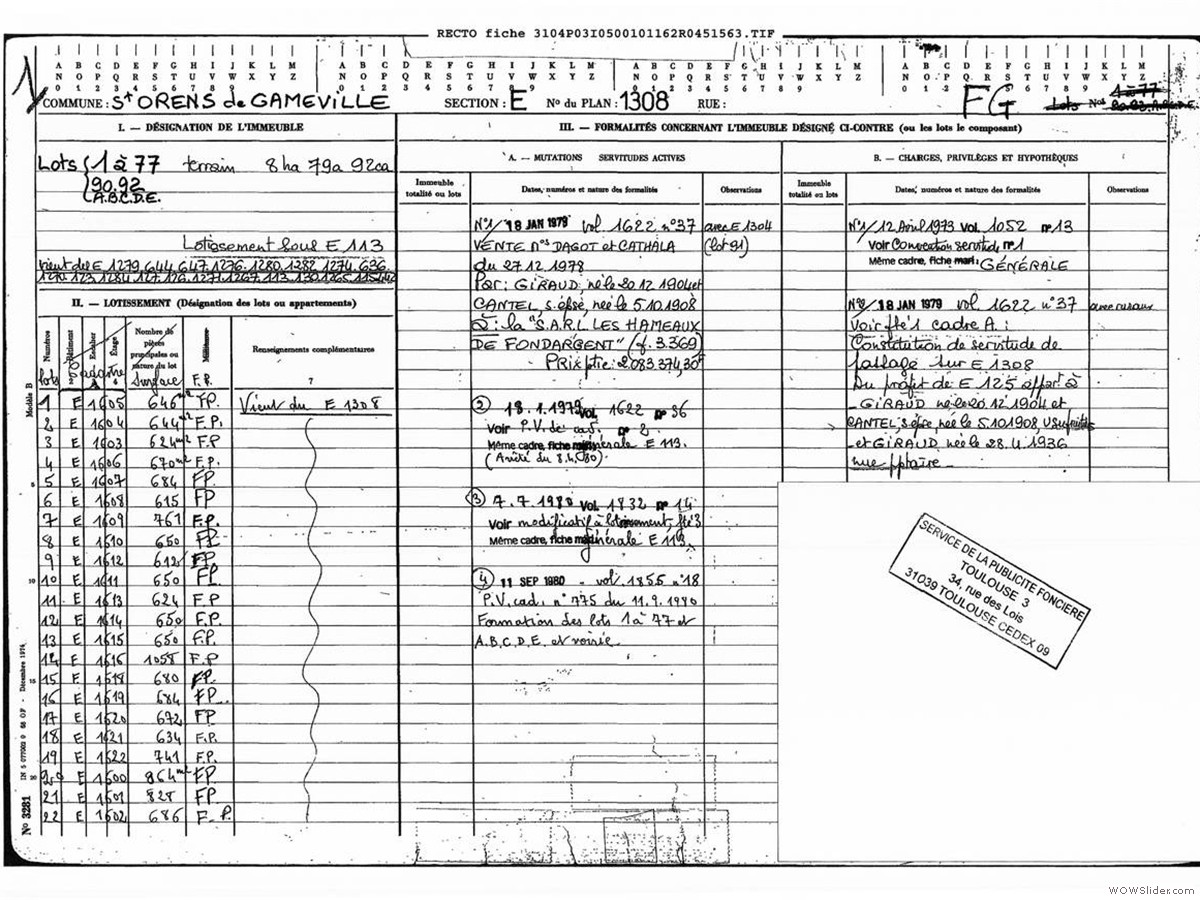 RECTO fiche 3104P03I0500101162R0451563.TIF
COMMUNE : St ORENS de GAMEVILLE SECTION : E No du PLAN : 1308 RUE : FG
Lots Nos 1 à 77
I. — DÉSIGNATION DE L'IMMEUBLE
Lots 1 à 77 terrain 8 ha 79a 92ca
90.92
A.B.C.D.E.
Lotissement sous E 113
vient de E 1279. 644. 647. 1276. 1280. 1282. 1274. 636.
II. — LOTISSEMENT (Désignation des lots ou appartements)
Numéros Bâtiment Escalier Étage Nombre de pièces principales ou nature du lot Millièmes Renseignements complémentaires
lots cadastre Surface F.P. 7
1 E 1605 646 m2 F.P. Vient du E 1308
2 E 1604 644 m2 F.P.
3 E 1603 624 m2 F.P
4 E 1606 670 m2 F.P.
5 E 1607 684 FP.
6 E 1608 615 FP
7 E 1609 761 F.P.
8 E 1610 650 FP
9 E 1612 612 FP
10 E 1611 650 FP
11 E 1613 624 F.P
12 E 1614 650 F.P.
13 E 1615 650 F.P.
14 E 1616 1058 F.P
15 E 1618 680 FP.
16 E 1619 684 FP
17 E 1620 672 FP
18 E 1621 634 F.P.
19 E 1622 741 F.P.
20 E 1600 864 m2 FP
21 E 1601 828 FP
22 E 1602 686 F.P.
III. — FORMALITÉS CONCERNANT L'IMMEUBLE DÉSIGNÉ CI-CONTRE (ou les lots le composant)
A. — MUTATIONS SERVITUDES ACTIVES
Immeuble totalité ou lots Dates, numéros et nature des formalités Observations
N°1/ 18 JAN 1979 vol. 1622 n°37 avec E 1304
VENTE nos DAGOT et CATHALA (lot 91)
du 27.12.1978
Par : GIRAUD, né le 20.12.1904 et
CANTEL, s. épse, née le 5.10.1908
à : la "S.A.R.L. LES HAMEAUX
DE FONDARGENT" (f. 3.369)
Prix ptie : 2.083.374,30F
2 18.1.1979 vol. 1622 n° 36
Voir P.V. de cad. n° 2.
Même cadre, fiche générale E 113.
7.7.1980 vol. 1832 n° 14
Voir modificatif à lotissement, fté 3
Même cadre, fiche générale E 113.
4 11 SEP 1980 - vol. 1855 n°18
P.V. cad. n° 775 du 11.9.1980
Formation des lots 1 à 77 et
A.B.C.D.E. et voirie.
B. — CHARGES, PRIVILÈGES ET HYPOTHÈQUES
Immeuble totalité ou lots Dates, numéros et nature des formalités Observations
N°1/ 12 Avril 1973 Vol. 1052 n° 13
Voir Convention servitude n°1
Même cadre, fiche GÉNÉRALE
N°2/ 18 JAN 1979 vol. 1622 n°37
Voir fté 1 cadre A :
Constitution de servitude de
passage sur E 1308
Au profit de E 125 appart. à
- GIRAUD né le 20.12.1904 et
CANTEL, s. épse, née le 5.10.1908, usufruitiers
- et GIRAUD, née le 28.4.1936
nue pptaire -
SERVICE DE LA PUBLICITE FONCIERE
TOULOUSE 3
34, rue des Lois
31039 TOULOUSE CEDEX 09
Modèle B
No 3281 IN 5 077002 0 68 OF - Décembre 1974.
WOWSlider.com